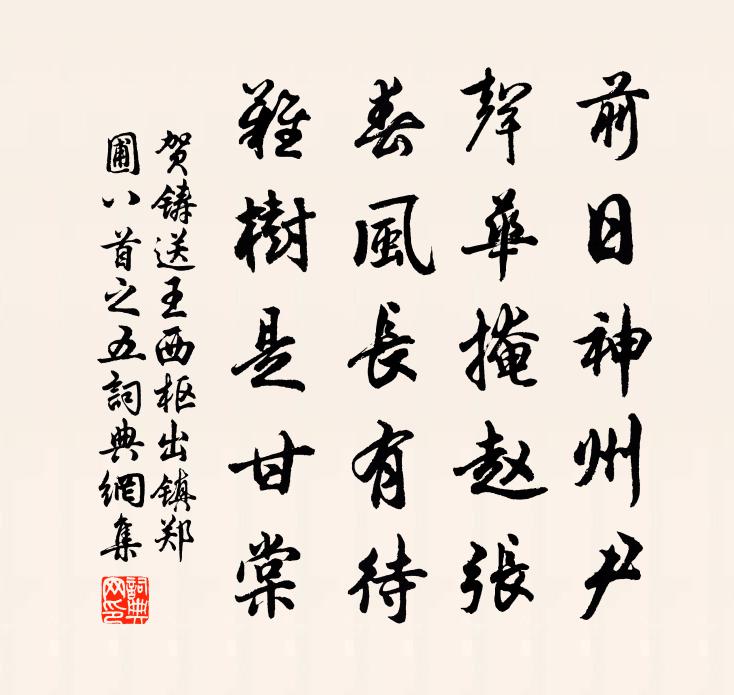 前日神州尹
聲華掩赵張
春風長有待
難樹是甘棠
贺鑄送王西枢出鎮郑
圃八首之五詞典網集
詞典网印